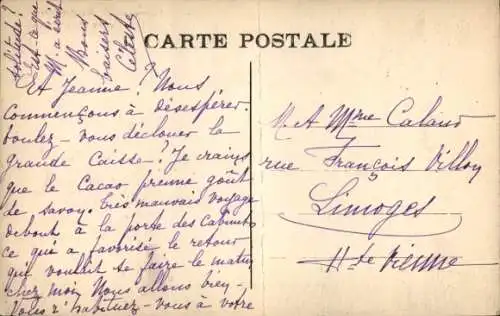 CARTE POSTALE
Et Jeanne? Nous
commençons à désespérer.
Voulez-vous déclouer la
grande Caisse? Je crains
que le Cacao prenne goût
de savoy. Très mauvais voyage
debout à la porte des Cabinets
ce qui a favorisé le retour
qui voulait se faire le matin
chez moi Nous allons bien -
Vous s'habituez-vous à votre
solitude?
Est-ce que
M. a écrit
Bons
baisers
Céleste
M. et Mme Calaud
rue François Villon
Limoges
Hte Vienne